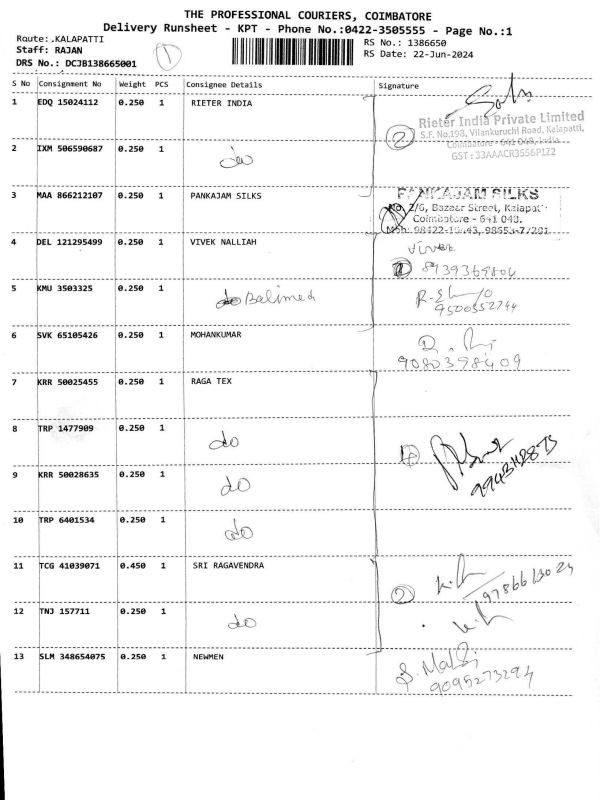 THE PROFESSIONAL COURIERS, COIMBATORE
Delivery Runsheet - KPT - Phone No.:0422-3505555 - Page No.:1
Route: KALAPATTI
Staff: RAJAN
DRS No.: DCJB138665001
1
RS No.: 1386650
RS Date: 22-Jun-2024
S No Consignment No Weight PCS Consignee Details Signature
1 EDQ 15024112 0.250 1 RIETER INDIA
Rieter India Private Limited
S.F. No.198, Vilankuruchi Road, Kalapatti,
Coimbatore - 641 048, India
GST : 33AAACR3556P1Z2
2
2 IXM 506590687 0.250 1 do
3 MAA 866212107 0.250 1 PANKAJAM SILKS
PANKAJAM SILKS
No. 2/6, Bazaar Street, Kalapatti
Coimbatore - 641 048.
4 DEL 121295499 0.250 1 VIVEK NALLIAH
Vivek
8939369804
5 KMU 3503325 0.250 1 do Balimed
9500552744
6 SVK 65105426 0.250 1 MOHANKUMAR
9080398409
7 KRR 50025455 0.250 1 RAGA TEX
8 TRP 1477909 0.250 1 do
4
9 KRR 50028635 0.250 1 do
10 TRP 6401534 0.250 1 do
11 TCG 41039071 0.450 1 SRI RAGAVENDRA
2
9786613024
12 TNJ 157711 0.250 1 do
13 SLM 348654075 0.250 1 NEWMEN
9095273294